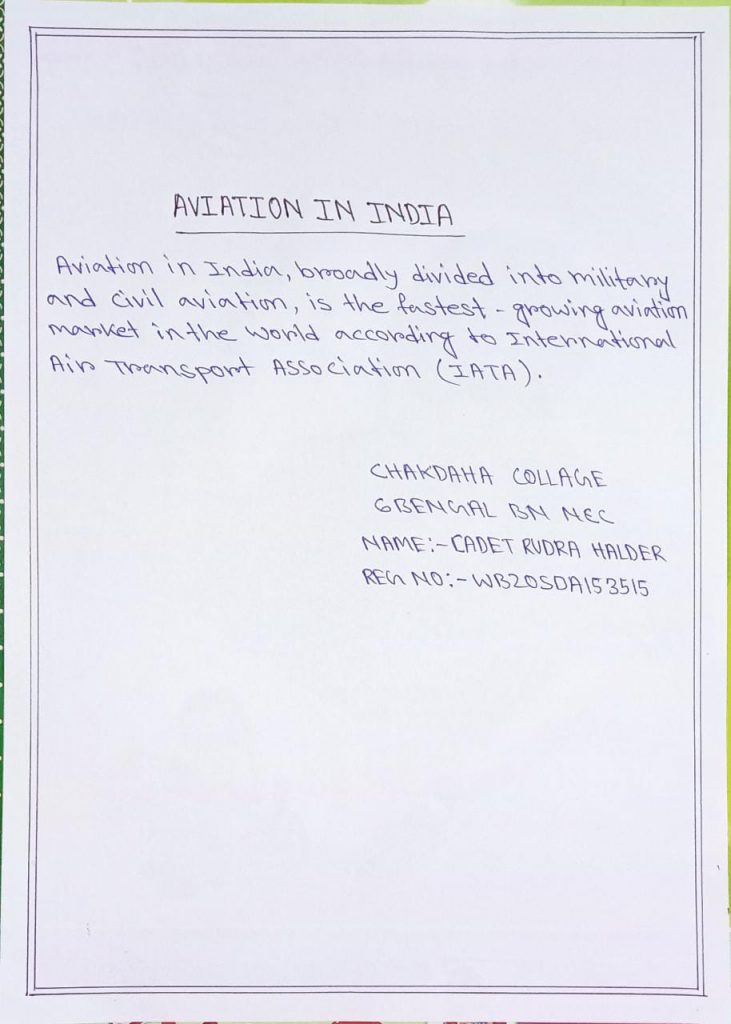 AVIATION IN INDIA
Aviation in India, broadly divided into military
and civil aviation, is the fastest - growing aviation
market in the world according to International
Air Transport Association (IATA).
CHAKDAHA COLLAGE
6BENGAL BN NCC
NAME:- CADET RUDRA HALDER
REG NO:- WB20SDA153515